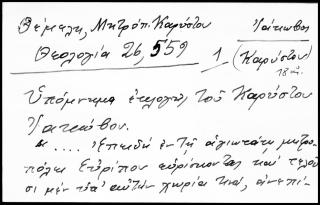 Θέμελη, Μητρόπ. Καρύστου Ἰάκωβος
Θεολογία 26, 559 1 (Καρύστου)
18 αἰ.
Ὑπόμνημα ἐκλογῆς τοῦ Καρύστου
Ἰακώβου.
« .... Ἐπειδὴ ἐν τῇ ἁγιωτάτῃ μητρο-
πόλει Εὐρίπου εὑρίσκονται καὶ τελοῦ-
σι μὲν ὑπ' αὐτὴν χωρία τινά,